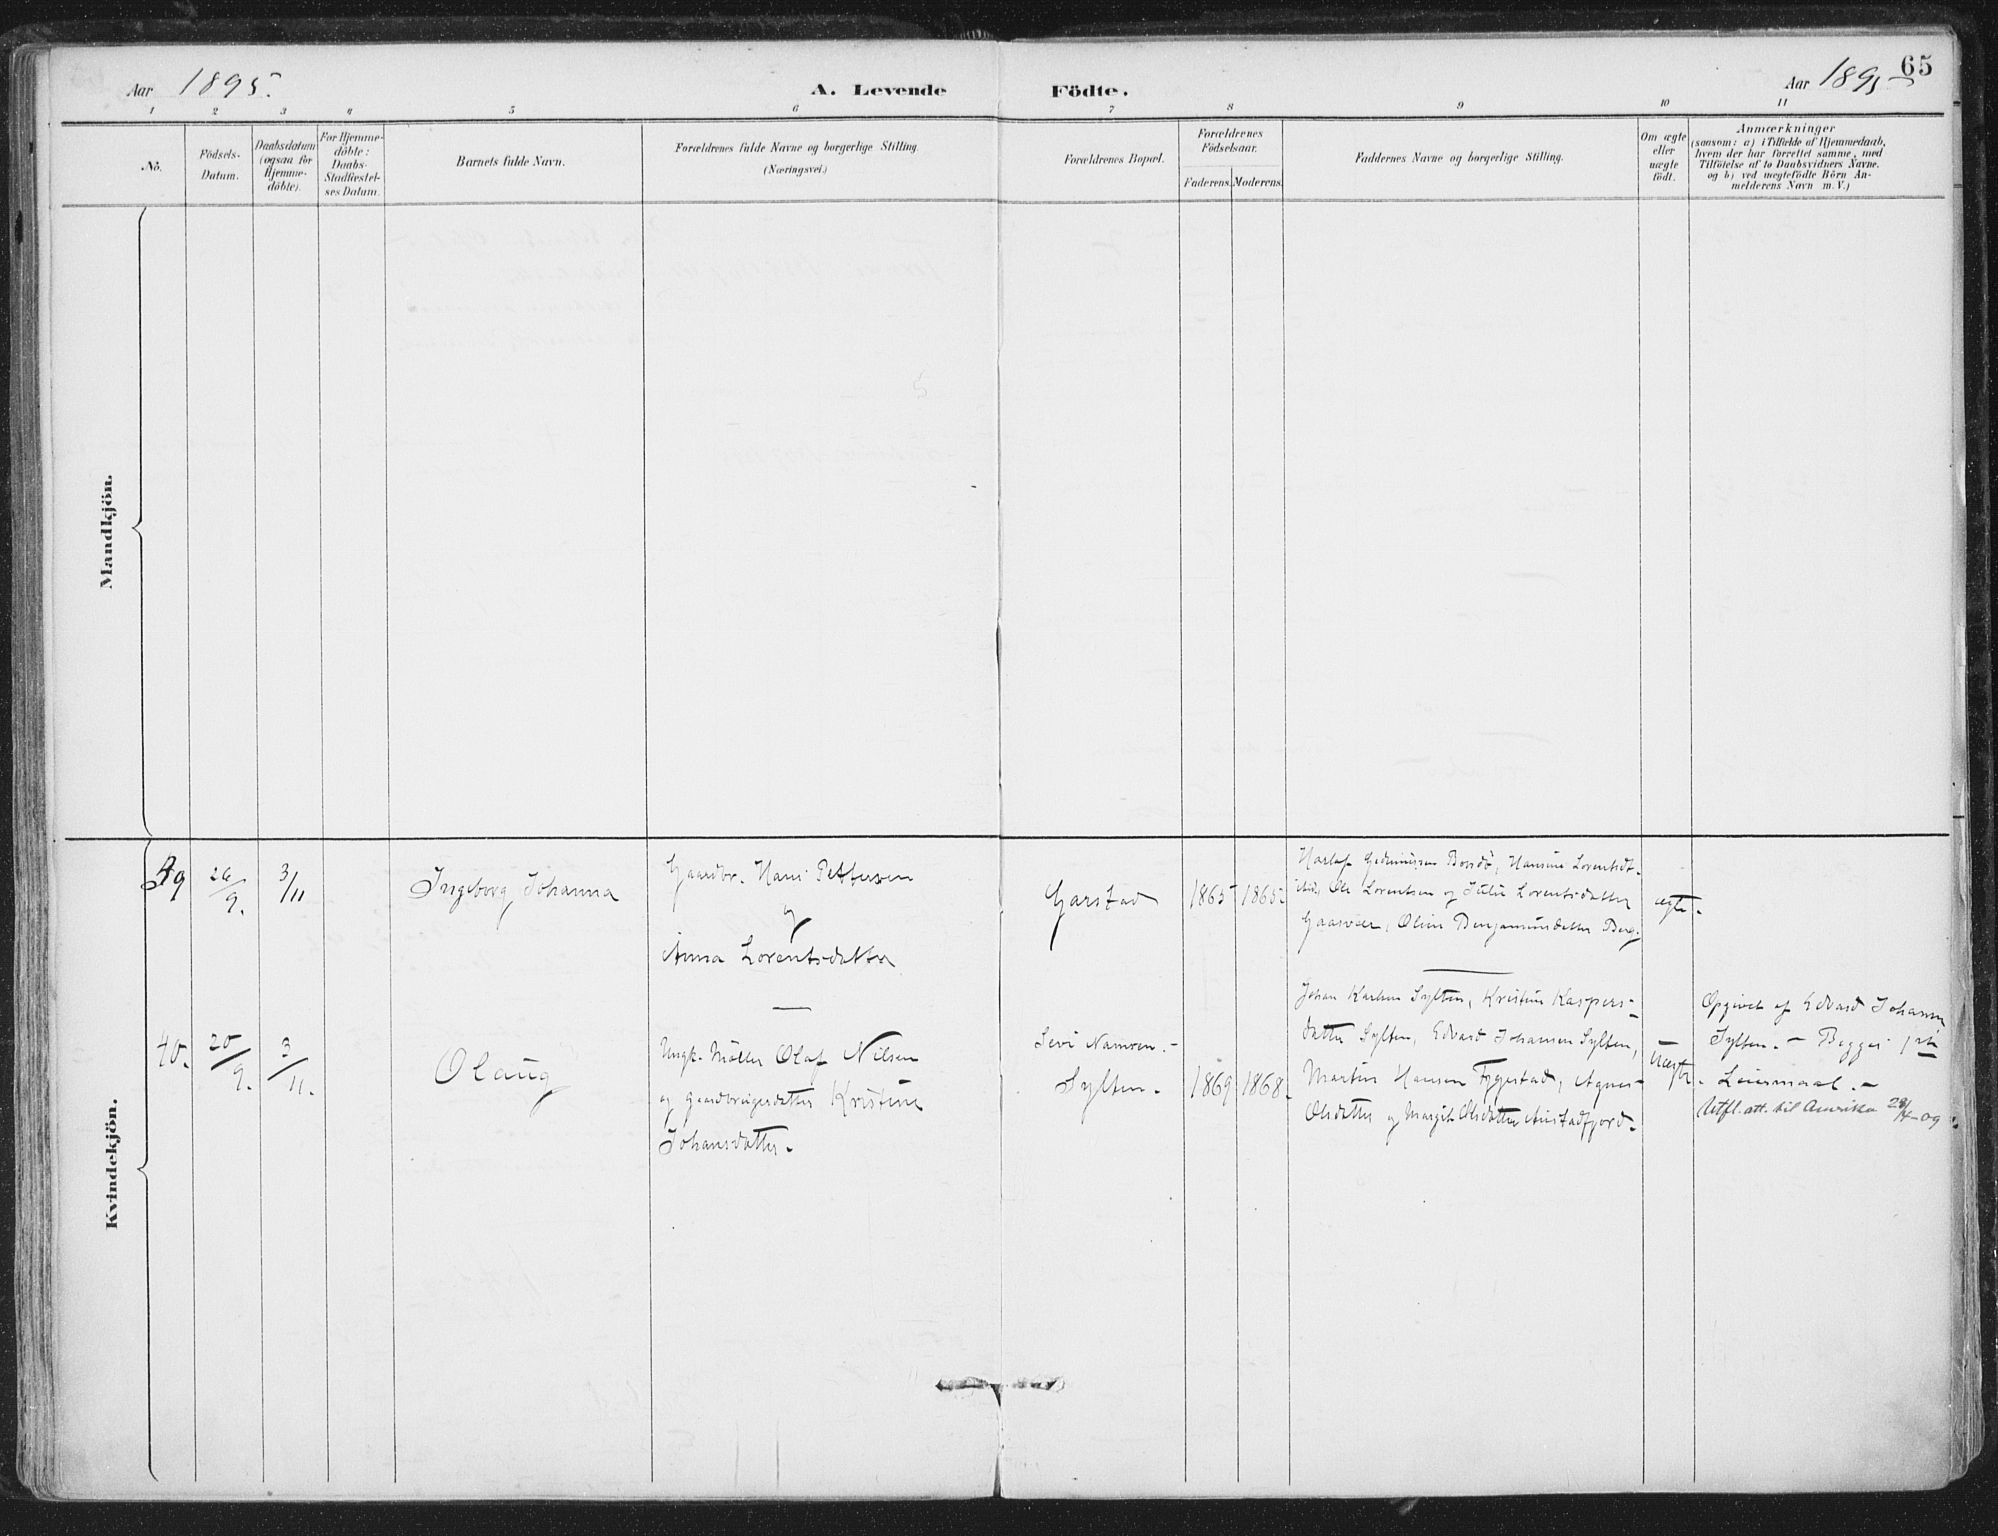 65
Aar 1895.
A. Levende Födte.
Aar 1895
1 2 3 4 5 6 7 8 9 10 11
No.
Födsels-
Datum.
Daabsdatum
(ogsaa for
Hjemme-
döbte).
For Hjemme-
döbte:
Daabs-
Stadfæstel-
ses Datum.
Barnets fulde Navn.
Forældrenes fulde Navne og borgerlige Stilling.
(Næringsvei.)
Forældrenes Bopæl.
Forældrenes
Födselsaar.
Faderens. Moderens.
Faddernes Navne og borgerlige Stilling.
Om ægte
eller
uægte
födt.
Anmærkninger
(saasom: a) i Tilfælde af Hjemmedaab,
hvem der har forrettet samme, med
Tilföielse af to Daabsvidners Navne.
og b) ved uægtefödte Börn An-
melderens Navn m.V.)
Mandkjön.
Kvindekjön.
39
26/9.
3/11
Ingeborg Johanna
Gaardbr. Hans Pettersen
og
Anna Lorentsdatter
Garstad
1865 1865.
Lorentsdt.
Ole Lorentsen og Lorentsdatter
Gaasvær, Oline Benjaminsdatter Berg.
ægte.
40.
20/9.
3/11.
Olaug
Ungk. Möller Olaf Nilsen
og gaardbrugerdatter Kristine
Johansdatter.
Namsen.-
Sylten.
1869 1868.
Johan Karlsen Sylten, Kristine Kaspers-
datter Sylten, Edvard Johansen Sylten,
Martin Hansen Agnes
Olsdatter og Margit Olsdatter
Uægte.
Opgivet af Edvard Johansen
Sylten. - Begges 1ste
Leiermaal. -
Utfl. att. til Amerika 09